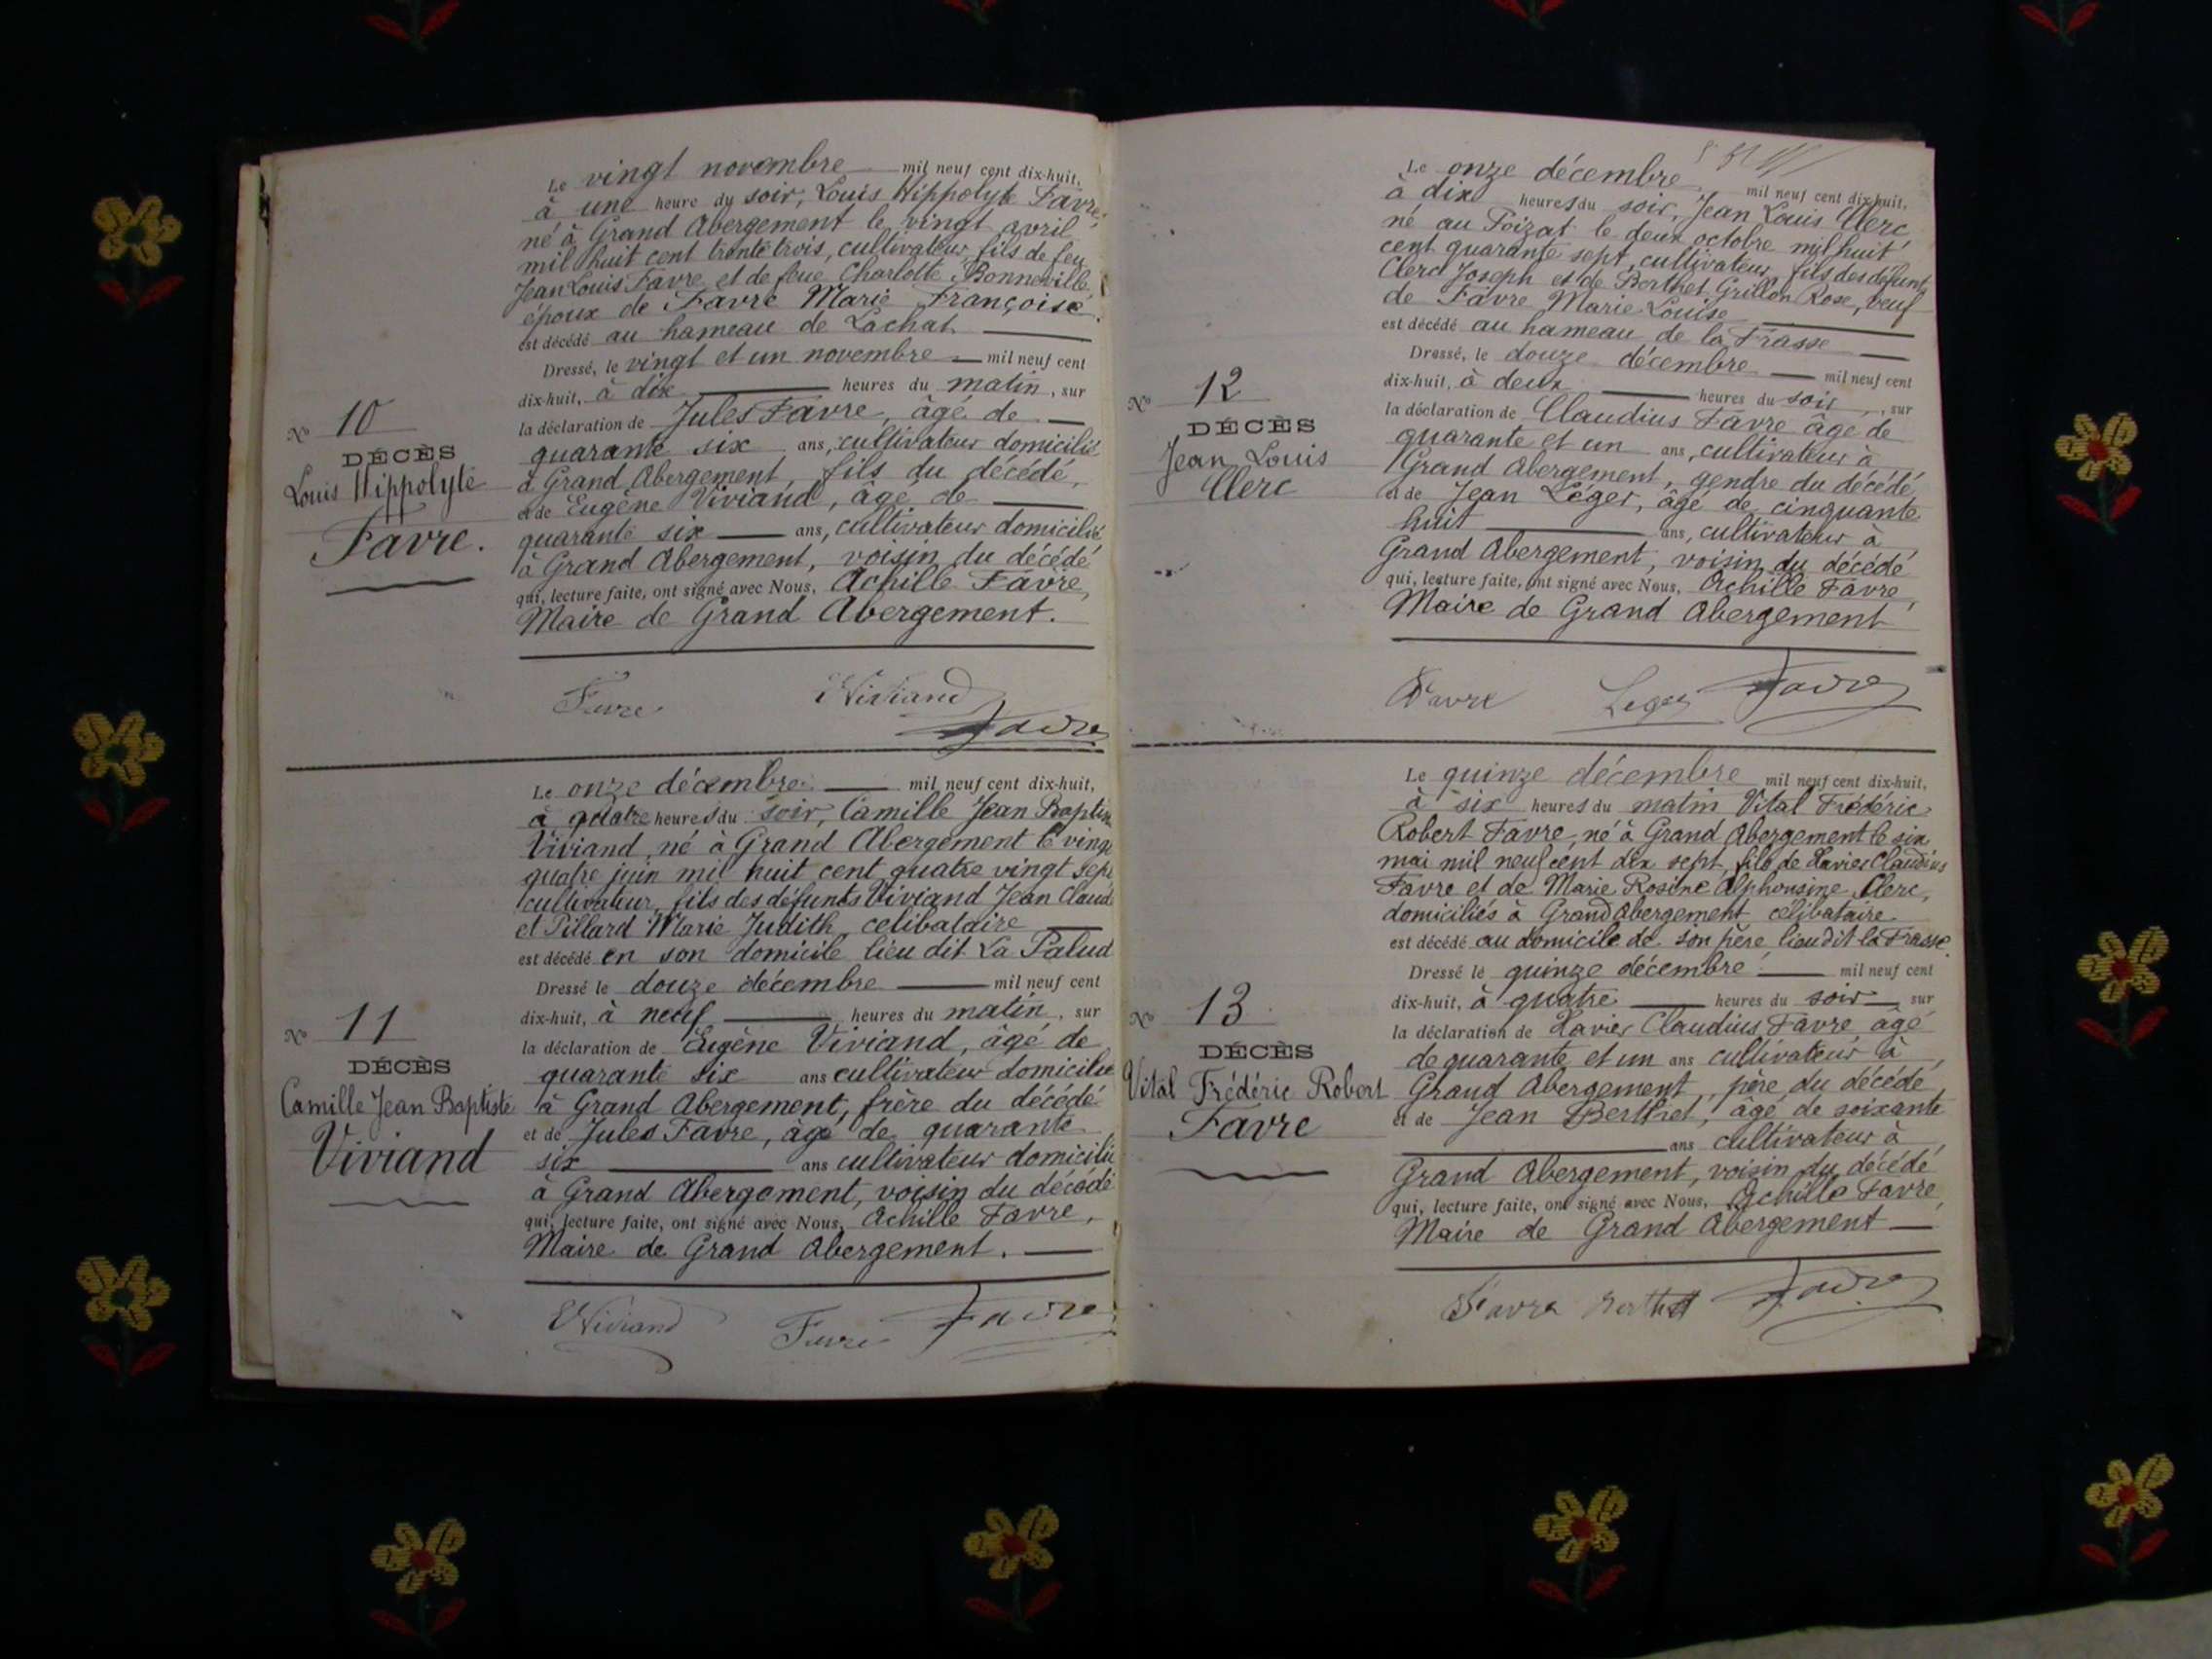 Le vingt novembre mil neuf cent dix-huit,
à une heure du soir, Louis Hippolyte Favre,
né à Grand Abergement le vingt avril
mil huit cent trente trois, cultivateur, fils de feu
Jean Louis Favre et de feue Charlotte Bonneville
époux de Favre Marie Françoise.
est décédé au hameau de Lachat
Dressé, le vingt et un novembre mil neuf cent
dix-huit, à dix heures du matin, sur
la déclaration de Jules Favre, âgé de
quarante six ans, cultivateur domicilié
à Grand Abergement, fils du décédé,
et de Eugène Viviand, âgé de
quarante six ans, cultivateur domicilié
à Grand Abergement, voisin du décédé
qui, lecture faite, ont signé avec Nous, Achille Favre,
Maire de Grand Abergement.
No 10
DÉCÈS
Louis Hippolyte
Favre.
Favre Viviand
Favre
Le onze décembre mil neuf cent dix-huit,
à quatre heures du soir, Camille Jean Baptis
Viviand, né à Grand Abergement le vingt
quatre juin mil huit cent quatre vingt sept
cultivateur, fils des défunts Viviand Jean Claud
et Pillard Marie Judith, celibataire
est décédé en son domicile lieu dit La Palud
Dressé le douze décembre mil neuf cent
dix-huit, à neuf heures du matin, sur
la déclaration de Eugène Viviand, âgé de
quarante six ans cultivateur domicilié
à Grand Abergement, frère du décédé
et de Jules Favre, âgé de quarante
six ans cultivateur domicilié
à Grand Abergement, voisin du décédé
qui, lecture faite, ont signé avec Nous, Achille Favre,
Maire de Grand Abergement.
No 11
DÉCÈS
Camille Jean Baptiste
Viviand
Viviand Favre Favre
Le onze décembre mil neuf cent dix-huit,
à dix heures du soir, Jean Louis Clerc
né au Poizat le deux octobre mil huit
cent quarante sept, cultivateur, fils des défunt
Clerc Joseph et de Berthet Grillon Rose, veuf
de Favre Marie Louise
est décédé au hameau de la Frasse
Dressé, le douze décembre mil neuf cent
dix-huit, à deux heures du soir, sur
la déclaration de Claudius Favre âgé de
quarante et un ans, cultivateur à
Grand Abergement, gendre du décédé
et de Jean Léger, âgé de cinquante
huit ans, cultivateur à
Grand Abergement, voisin du décédé
qui, lecture faite, ont signé avec Nous, Achille Favre,
Maire de Grand Abergement
No 12
DÉCÈS
Jean Louis
Clerc
Favre Leger Favre
Le quinze décembre mil neuf cent dix-huit,
à six heures du matin Vital Frédéric
Robert Favre, né à Grand Abergement le six
mai mil neuf cent dix sept, fils de Xavier Claudius
Favre et de Marie Rosine Alphonsine Clerc,
domiciliés à Grand Abergement célibataire
est décédé au domicile de son père lieu dit la Frasse.
Dressé le quinze décembre mil neuf cent
dix-huit, à quatre heures du soir sur
la déclaration de Xavier Claudius Favre âgé
de quarante et un ans cultivateur à
Grand Abergement, père du décédé,
et de Jean Berthet, âgé de soixante
ans cultivateur à
Grand Abergement, voisin du décédé
qui, lecture faite, ont signé avec Nous, Achille Favre,
Maire de Grand Abergement
No 13
DÉCÈS
Vital Frédéric Robert
Favre
Favre Berthet Favre